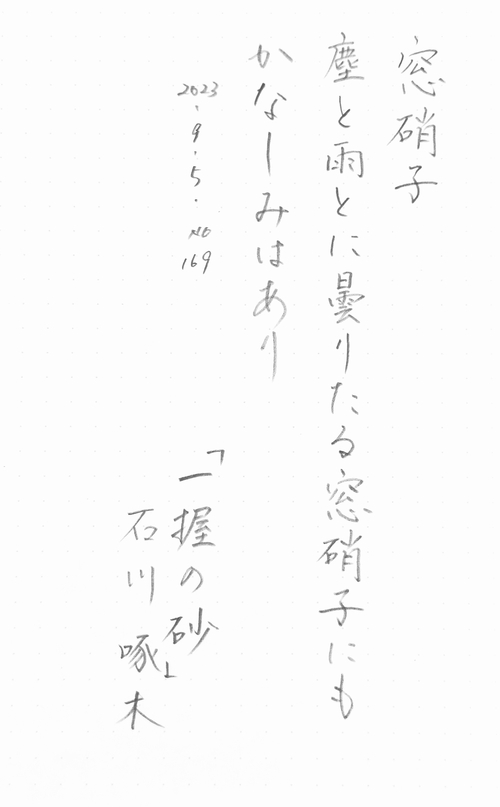 窓硝子
塵と雨とに曇りたる窓硝子にも
かなしみはあり
2023.9.5. No 169
「一握の砂」
石川 啄木